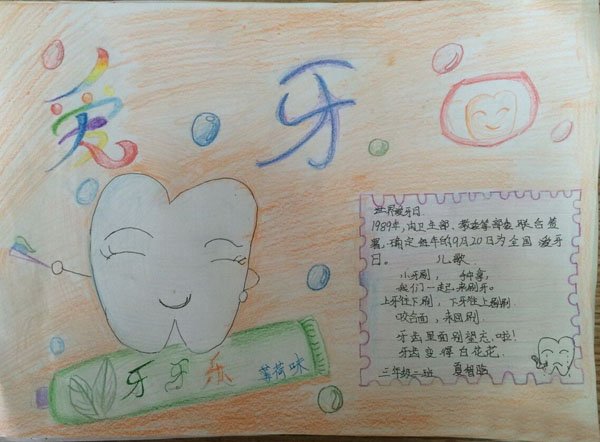 爱牙日
牙牙乐 薄荷味
世界爱牙日
1989年,由卫生部、教委等部委联合签
署,确定每年的9月20日为全国爱牙
日。 儿歌
小牙刷,手中拿,
我们一起来刷牙。
上牙往下刷,下牙往上刷刷
咬合面,来回刷
牙齿里面别望忘啦!
牙齿变得白花花
三年级二班 夏